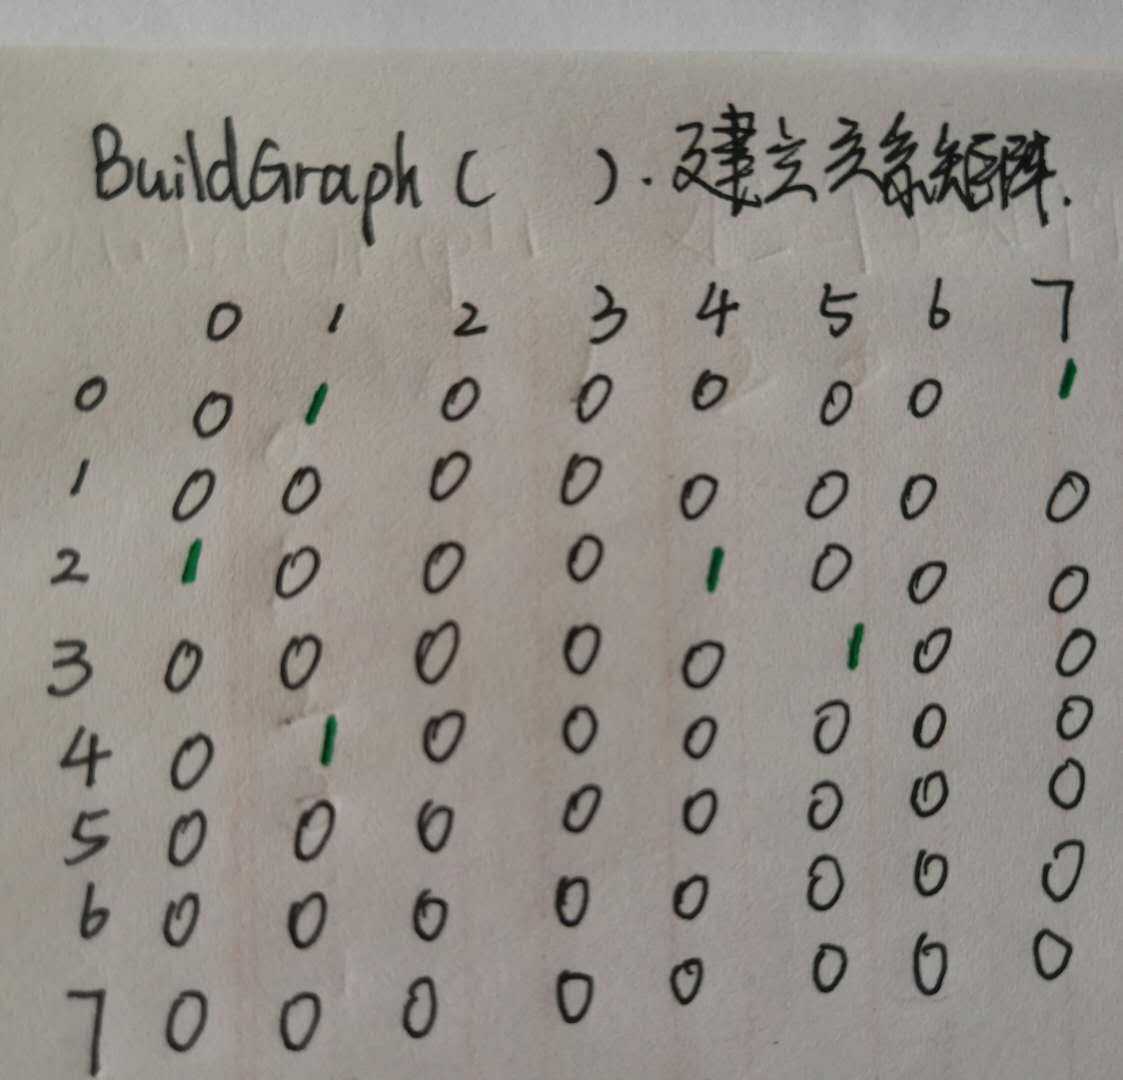 BuildGraph ( ). 建立关系矩阵.
0 1 2 3 4 5 6 7
0 0 1 0 0 0 0 0 1
1 0 0 0 0 0 0 0 0
2 1 0 0 0 1 0 0 0
3 0 0 0 0 0 1 0 0
4 0 1 0 0 0 0 0 0
5 0 0 0 0 0 0 0 0
6 0 0 0 0 0 0 0 0
7 0 0 0 0 0 0 0 0